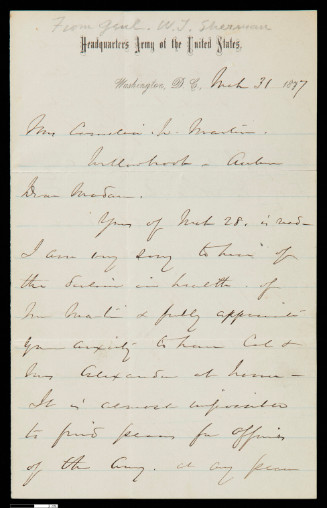 From Genl. W. T. Sherman
Headquarters Army of the United States.
Washington, D. C., Mch 31 1877
Mrs Cornelia W. Martin.
Willowbrook - Auburn
Dear Madam.
Yours of Mch 28. is recd -
I am very sorry to hear of
the decline in health of
Mr Martin & fully appreciate
your anxiety to have Col &
Mrs Alexander at home -
It is almost impossible
to find places for Officers
of the Army. at any